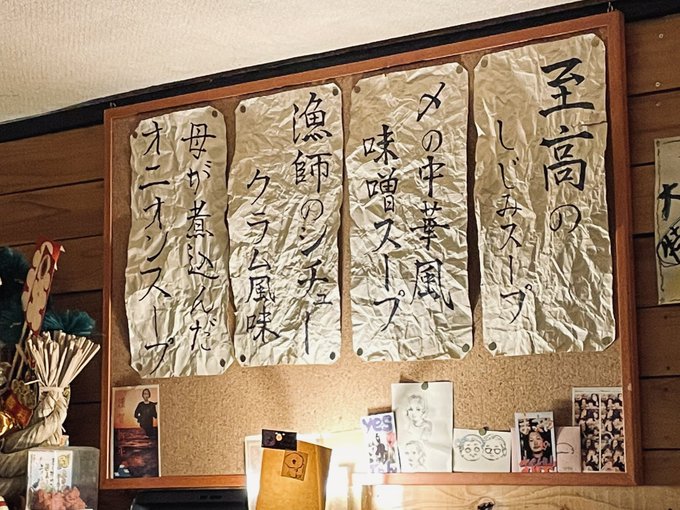 至高の
しじみスープ
〆の中華風
味噌スープ
漁師のシチュー
クラム風味
母が煮込んだ
オニオンスープ